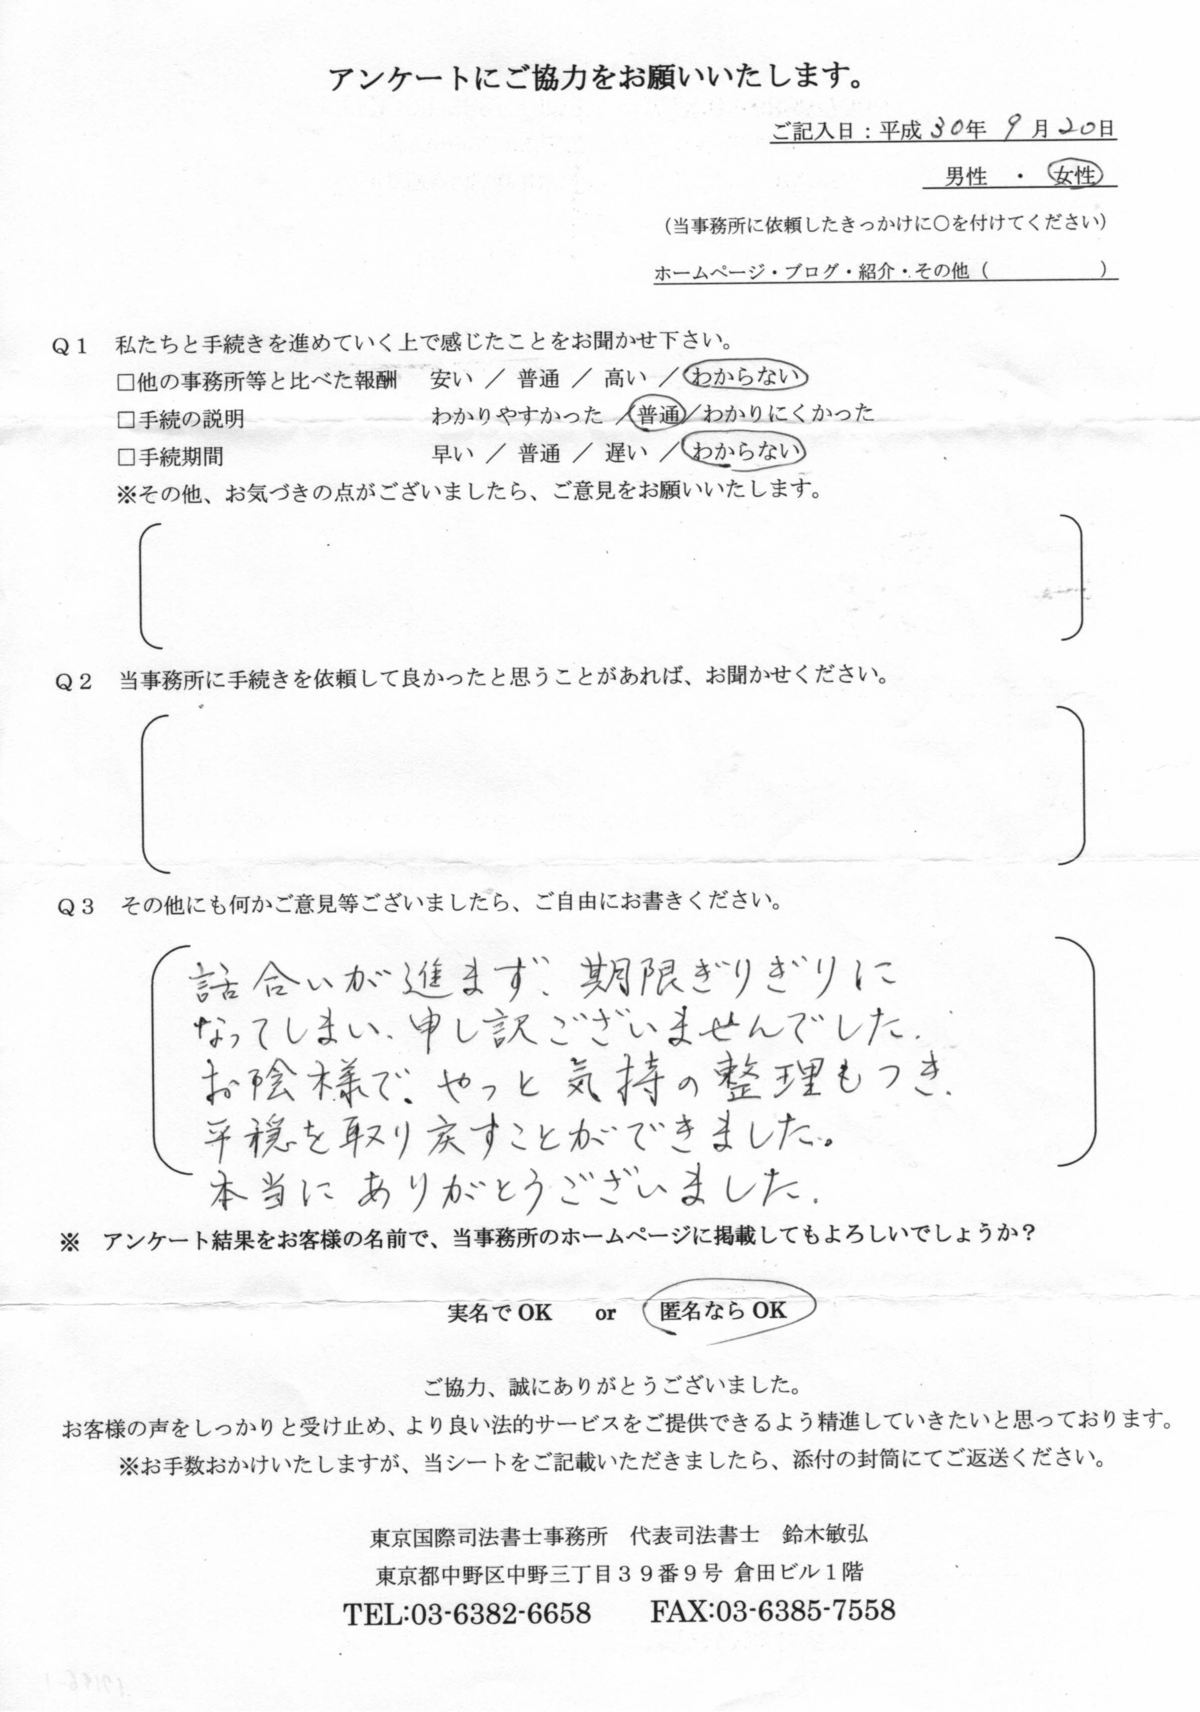 アンケートにご協力をお願いいたします。
ご記入日：平成30年 9月20日
男性 ・ 女性
（当事務所に依頼したきっかけに○を付けてください）
ホームページ・ブログ・紹介・その他（　　　　　）
Q1 私たちと手続きを進めていく上で感じたことをお聞かせ下さい。
□他の事務所等と比べた報酬 安い ／ 普通 ／ 高い ／ わからない
□手続の説明 わかりやすかった ／普通／わかりにくかった
□手続期間 早い ／ 普通 ／ 遅い ／ わからない
※その他、お気づきの点がございましたら、ご意見をお願いいたします。
Q2 当事務所に手続きを依頼して良かったと思うことがあれば、お聞かせください。
Q3 その他にも何かご意見等ございましたら、ご自由にお書きください。
話合いが進まず、期限ぎりぎりに
なってしまい、申し訳ございませんでした.
お陰様で、やっと気持の整理もつき、
平穏を取り戻すことができました。
本当にありがとうございました.
※ アンケート結果をお客様の名前で、当事務所のホームページに掲載してもよろしいでしょうか？
実名でOK or 匿名ならOK
ご協力、誠にありがとうございました。
お客様の声をしっかりと受け止め、より良い法的サービスをご提供できるよう精進していきたいと思っております。
※お手数おかけいたしますが、当シートをご記載いただきましたら、添付の封筒にてご返送ください。
東京国際司法書士事務所 代表司法書士 鈴木敏弘
東京都中野区中野三丁目３９番９号 倉田ビル１階
TEL:03-6382-6658 FAX:03-6385-7558